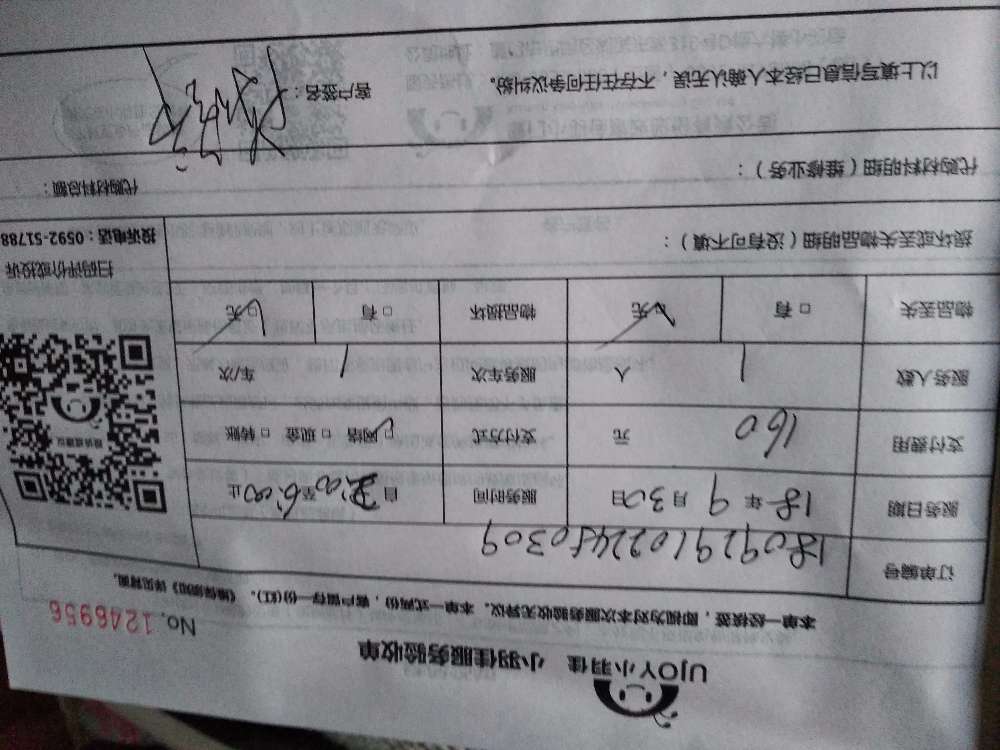 UJOY小羽佳 小羽佳服务验收单
No. 1246956
本单一经核签，即视为对本次服务验收无异议。本单一式两份，客户留存一份(红)。《维保须知》详见背面。
订单编号 18092910224580309
服务日期 18年9月30日 服务时间 自2:00至6:00止
支付费用 160 元 支付方式 □网络 □现金 □转账
服务人数 1 人 服务车次 1 车/次
物品丢失 □有 □无 物品损坏 □有 □无
扫码评价或投诉
投诉电话：0592-51788
损坏或丢失物品明细（没有可不填）：
代购材料明细（维修业务）： 代购材料总额：
以上填写信息已经本人确认无误，不存在任何争议纠纷。 客户签名：